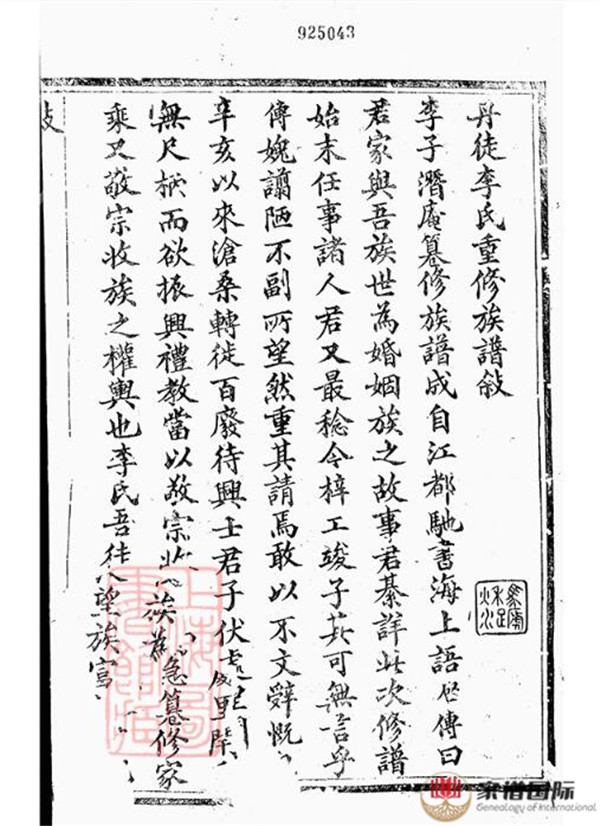 925043
丹徒李氏重修族譜敘
李子潛庵纂修族譜成自江都馳書海上語傳曰
君家與吾族世為婚姻族之故事君綦詳此次修譜
始末任事諸人君又最稔今梓工竣子其可無言乎
傳婉謝陋不副所望然重其請焉敢以不文辭慨
辛亥以來滄桑轉徙百廢待興士君子伏處
無尺柄而欲振興禮教當以敬宗收族為急纂修家
乘又敬宗收族之權輿也李氏吾徒望族
上海圖書館藏
家谱国际
Genealogy of International